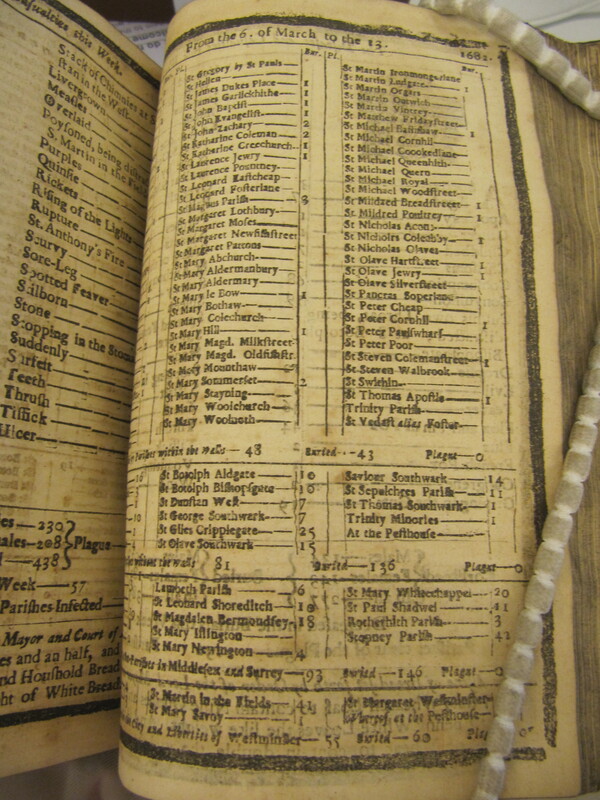 Casualties this Week.
Stack of Chimnies at S
stan in the West
Livergrown
Measles
Overlaid
Poysoned, being distra
S. Martin in the Fie
Purples
Quinsie
Rickets
Rising of the Lights
Rupture
St. Anthony's Fire
Scurvy
Sore-Leg
Spotted Feaver
Stilborn
Stone
Stopping in the Stoma
Suddenly
Surfeit
Teeth
Thrush
Tissick
Ulcer
es — 230
ales — 208 } Plague
l — 438
Week — 57
Parishes Infected
Mayor and Court of
es and an half, and
nd Houshold Bread
ht of White Bread
From the 6. of March to the 13. 1682.
Bur. Pl.
St Gregory by St Pauls
St Hellen
St James Dukes Place 1
St James Garlickhithe 1
St John Baptist 1
St John Evangelist 1
St John Zachary 2
St Katharine Coleman 2
St Katharine Creechurch 1
St Laurence Jewry 1
St Laurence Pountney
St Leonard Eastcheap
St Leonard Fosterlane
St Magnus Parish 3
St Margaret Lothbury
St Margaret Moses
St Margaret Newfishstreet
St Margaret Pattons
St Mary Abchurch
St Mary Aldermanbury
St Mary Aldermary
St Mary le Bow 1
St Mary Bothaw
St Mary Colechurch
St Mary Hill 1
St Mary Magd. Milkstreet
St Mary Magd. Oldfishstr.
St Mary Mounthaw
St Mary Sommerset 2
St Mary Stayning
St Mary Woolchurch
St Mary Woolnoth
Bur.
St Martin Ironmongerlane
St Martin Ludgate 1
St Martin Orgars
St Martin Outwich
St Martin Vintrey
St Matthew Fridaystreet
St Michael Bassishaw 1
St Michael Cornhil
St Michael Crookedlane
St Michael Queenhith
St Michael Quern
St Michael Royal
St Michael Woodstreet
St Mildred Breadstreet 1
St Mildred Poultrey 1
St Nicholas Acons
St Nicholas Coleabby 1
St Nicholas Olaves
St Olave Hartstreet 1
St Olave Jewry 1
St Olave Silverstreet
St Pancras Soperlane
St Peter Cheap
St Peter Cornhil 1
St Peter Paulswharf
St Peter Poor
St Steven Colemanstreet 1
St Steven Walbrook
St Swithin
St Thomas Apostle 1
Trinity Parish
St Vedast alias Foster
Parishes within the walls — 48 Buried — 43 Plague — 0
St Botolph Aldgate 10
St Botolph Bishopsgate 10
St Dunstan West 7
St George Southwark 7
St Giles Cripplegate 25
St Olave Southwark 15
Saviour Southwark 14
St Sepulchres Parish 11
St Thomas Southwark 1
Trinity Minories 1
At the Pesthouse
without the walls 81 Buried — 136 Plague — 0
Lambeth Parish 6
St Leonard Shoreditch 10
St Magdalen Bermondsey 18
St Mary Islington
St Mary Newington 4
St Mary Whitechappel 20
St Paul Shadwel 21
Rotherhith Parish 3
Stepney Parish 42
Parishes in Middlesex and Surrey — 93 Buried — 146 Plague — 0
St Martin in the Fields 41
St Mary Savoy 1
St Margaret Westminster
Whereof at the Pesthouse
in City and Liberties of Westminster — 55 Buried — 60